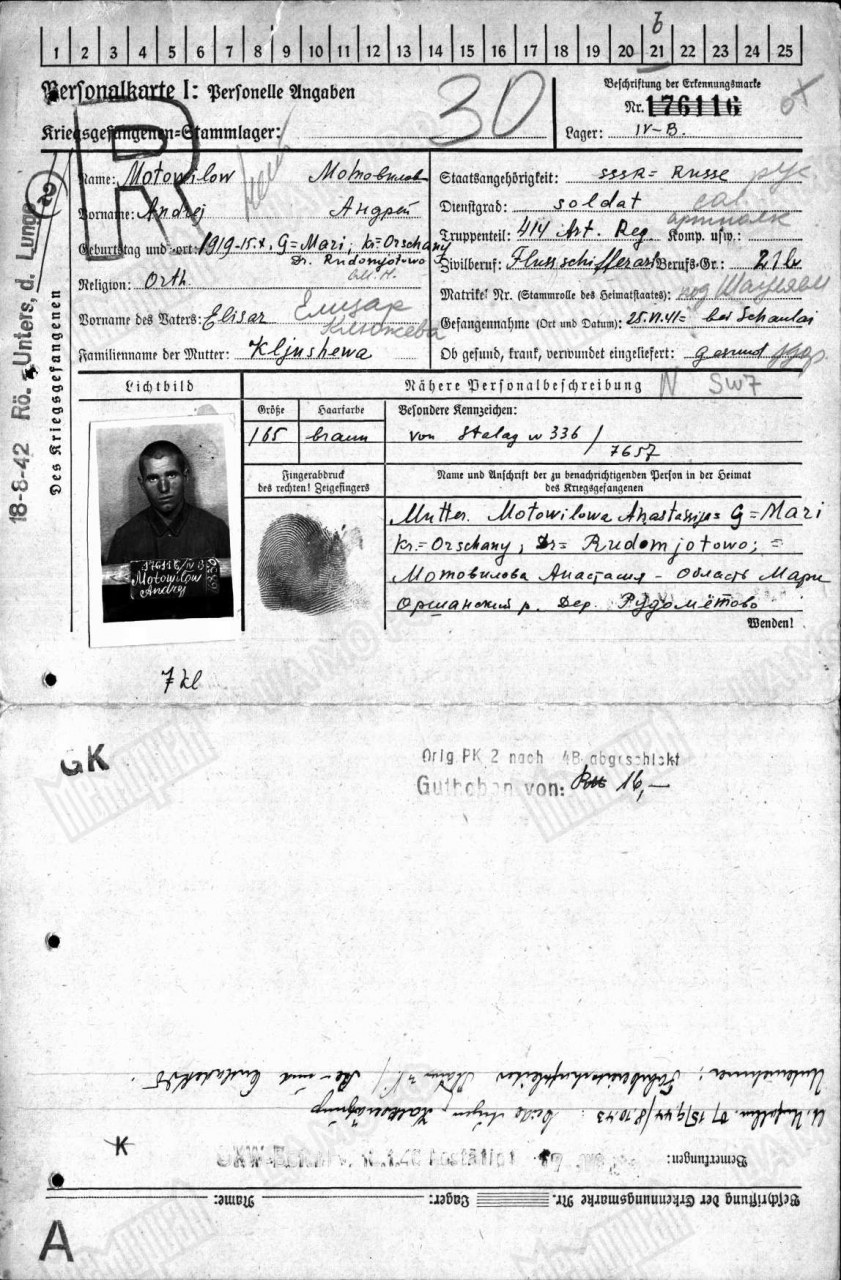 6
1 2 3 4 5 6 7 8 9 10 11 12 13 14 15 16 17 18 19 20 21 22 23 24 25
Personalkarte I: Personelle Angaben
Kriegsgefangenen=Stammlager:
30
Beschriftung der Erkennungsmarke
Nr. 176116
Lager: IV-B.
R
18-8-42 Rö.-Unters, d. Lunge
2
Des Kriegsgefangenen
Name: Motowilow Мотовилов
Vorname: Andrej Андрей
Geburtstag und -ort: 1919-15.X, G=Mari; kr=Orschany
Dr. Rudomjotowo
Religion: Orth.
Vorname des Vaters: Elisar Елизар
Familienname der Mutter: Kljushewa Клюжева
Staatsangehörigkeit: SSSR= Russe рус
Dienstgrad: soldat
Truppenteil: 414 Art. Reg. Komp. usw.:
артполк
Zivilberuf: Flussschifferarb Berufs-Gr.: 21b
Matrikel Nr. (Stammrolle des Heimatstaates): под Шауляем
Gefangennahme (Ort und Datum): 25.VI.41= bei Schaulai
Ob gesund, krank, verwundet eingeliefert: gesund здор.
Lichtbild
Nähere Personalbeschreibung N SW7
Größe Haarfarbe Besondere Kennzeichen:
165 braun von Stalag 336 /
7657
Fingerabdruck
des rechten! Zeigefingers
Name und Anschrift der zu benachrichtigenden Person in der Heimat
des Kriegsgefangenen
Mutter. Motowilowa Anastassija= G=Mari
kr.=Orschany, Dr= Rudomjotowo; =
Мотовилова Анастасия - область Мари
Оршанский р. Дер. Рудомётово
Wenden!
176116/IV B
Motowilow
Andrej
GK
Orig. PK 2 nach 4B abgeschickt
Guthaben von: 16,—
Bemerkungen:
K
Beschriftung der Erkennungsmarke Nr. Lager: Name:
A
Мемориал